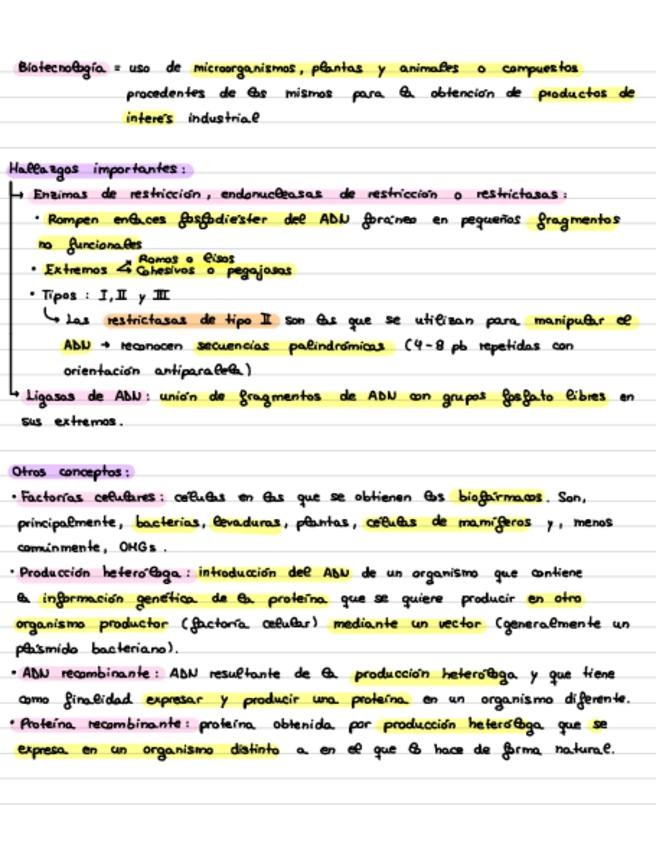 Biotecnología = uso de microorganismos, plantas y animales o compuestos
procedentes de los mismos para la obtención de productos de
interés industrial
Hallazgos importantes:
→ Enzimas de restricción, endonucleasas de restricción o restrictasas:
• Rompen enlaces fosfodiester del ADN foráneo en pequeños fragmentos
no funcionales
Romos o lisos
• Extremos Cohesivos o pegajosos
• Tipos: I, II y III
↳ Las restrictasas de tipo II son las que se utilizan para manipular el
ADN → reconocen secuencias palindrómicas (4-8 pb repetidas con
orientación antiparalela)
→ Ligasas de ADN: unión de fragmentos de ADN con grupos fosfato libres en
sus extremos.
Otros conceptos:
• Factorías celulares: células en las que se obtienen los biofármacos. Son,
principalmente, bacterias, levaduras, plantas, células de mamíferos y, menos
comúnmente, OMGs.
• Producción heteróloga: introducción del ADN de un organismo que contiene
la información genética de la proteína que se quiere producir en otro
organismo productor (factoría celular) mediante un vector (generalmente un
plásmido bacteriano).
• ADN recombinante: ADN resultante de la producción heteróloga y que tiene
como finalidad expresar y producir una proteína en un organismo diferente.
• Proteína recombinante: proteína obtenida por producción heteróloga que se
expresa en un organismo distinto a en el que lo hace de forma natural.